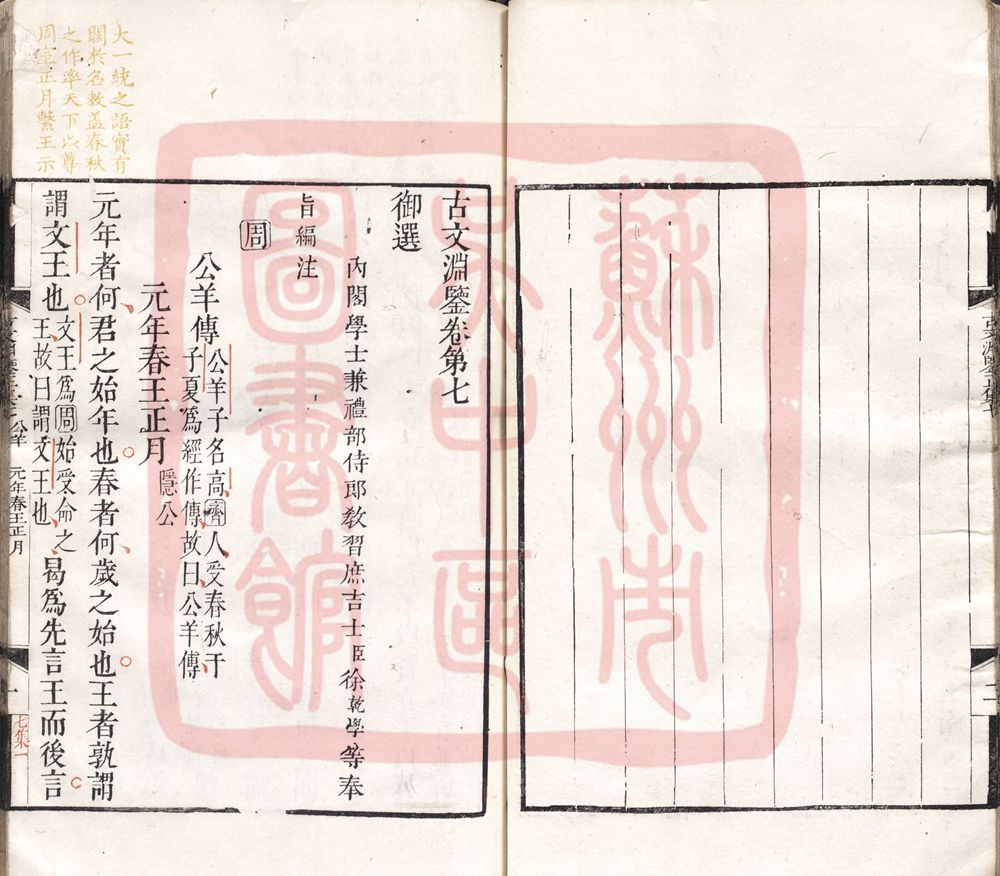 古文淵鑒卷第七
御選
內閣學士兼禮部侍郎教習庶吉士臣徐乾學等奉
旨編注
周
公羊傳
公羊子名高齊人受春秋于
子夏爲經作傳故曰公羊傳
元年春王正月
隱公
元年者何君之始年也春者何歲之始也王者孰謂
謂文王也
文王爲周始受命之
王故曰謂文王也
曷爲先言王而後言
大一統之語實有
關於名教蓋春秋
之作率天下以尊
周室正月繫王示
公羊 元年春王正月
一
七集一
蘇州市
吳中區
圖書館